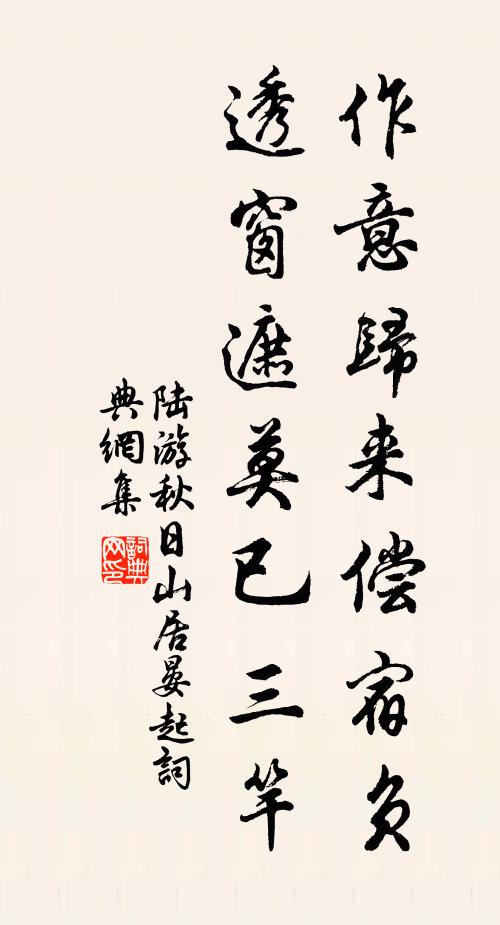 作意歸来偿宿负
透窗遮莫已三竿
陆游秋日山居晏起詞
典網集
詞典
网印